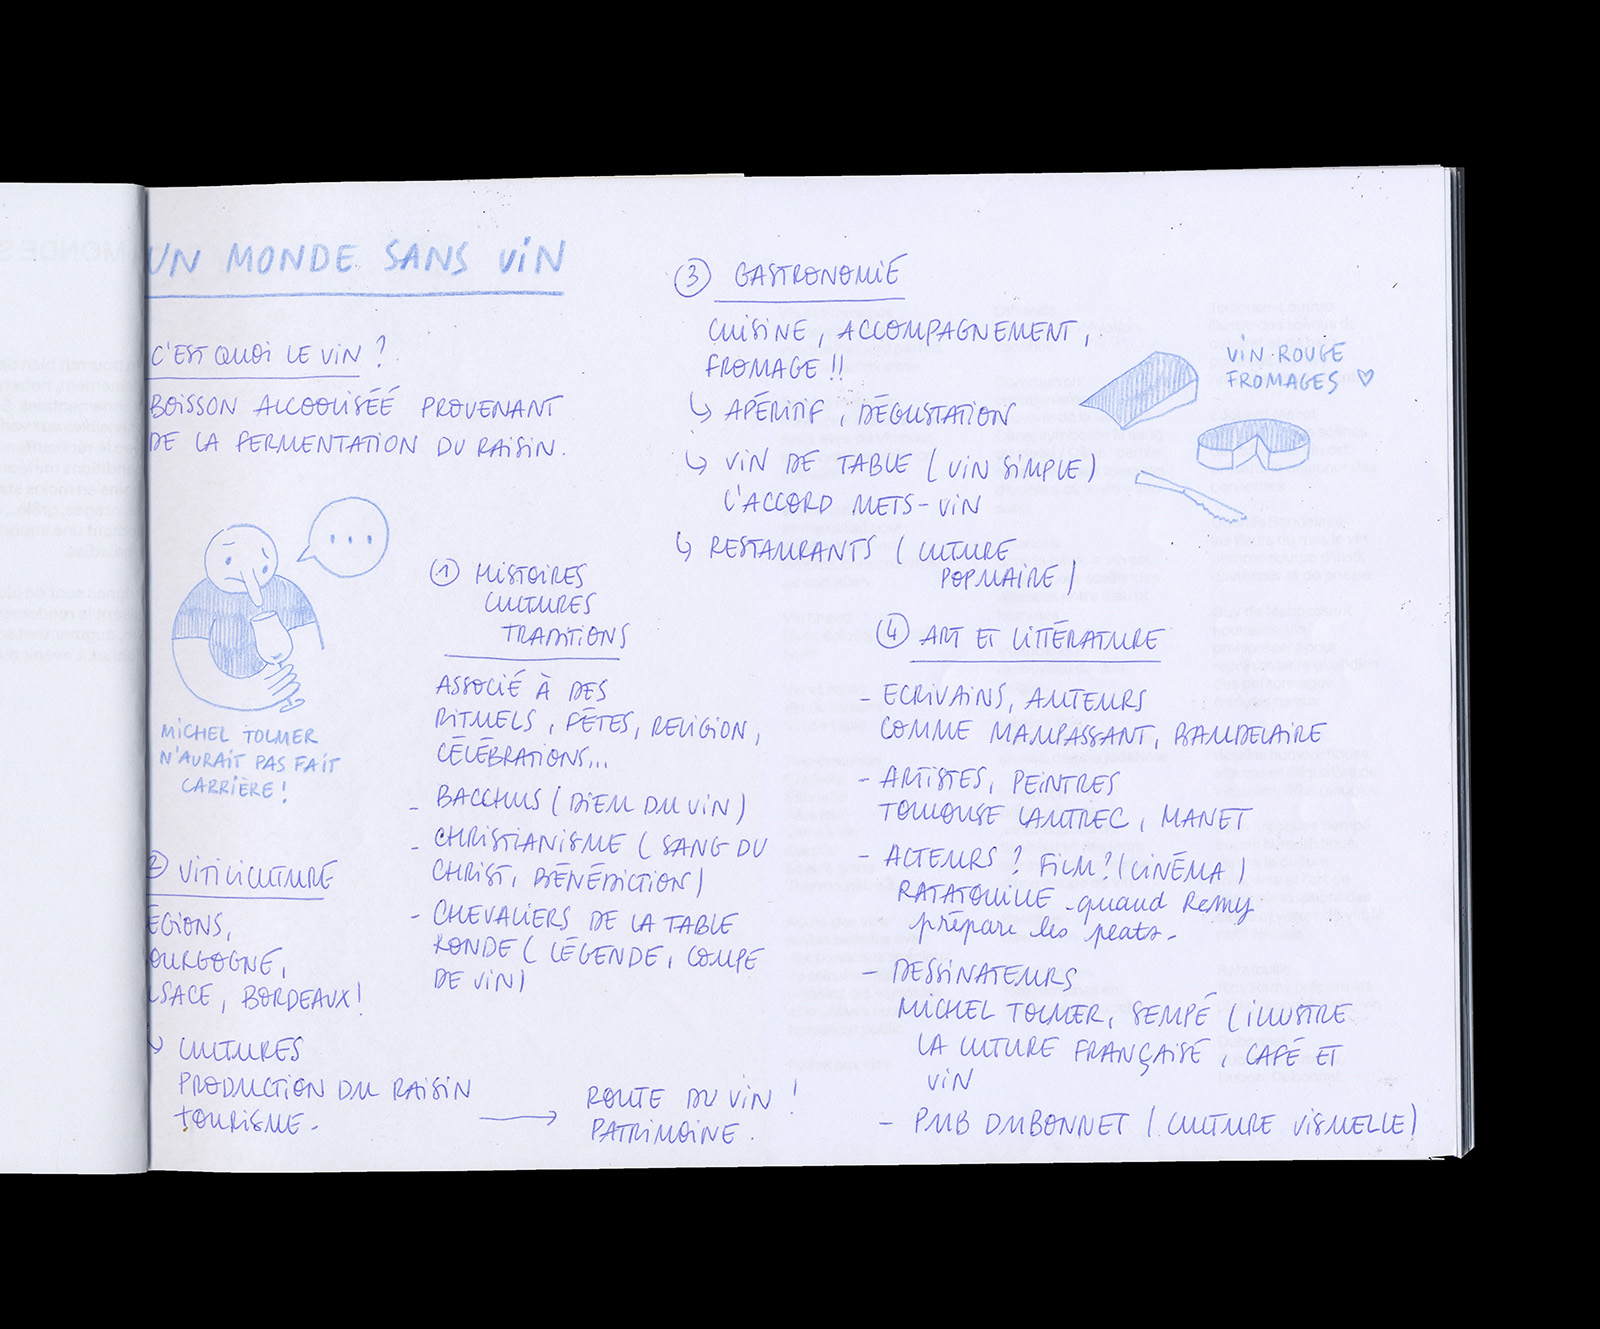 UN MONDE SANS VIN
C'EST QUOI LE VIN ?
BOISSON ALCOOLISÉÉ PROVENANT
DE LA FERMENTATION DU RAISIN.
...
MICHEL TOLMER
N'AURAIT PAS FAIT
CARRIÈRE !
① HISTOIRES
CULTURES
TRADITIONS
ASSOCIÉ À DES
RITUELS, FÊTES, RELIGION,
CÉLÉBRATIONS...
- BACCHUS (DIEU DU VIN)
- CHRISTIANISME (SANG DU
CHRIST, BÉNÉDICTION)
- CHEVALIERS DE LA TABLE
RONDE (LÉGENDE, COUPE
DE VIN)
② VITICULTURE
EGIONS,
OURGOGNE,
LSACE, BORDEAUX!
↳ CULTURES
PRODUCTION DU RAISIN
TOURISME -
→ ROUTE DU VIN !
PATRIMOINE.
③ GASTRONOMIE
CUISINE, ACCOMPAGNEMENT,
FROMAGE !!
↳ APÉRITIF, DÉGUSTATION
↳ VIN DE TABLE (VIN SIMPLE)
L'ACCORD METS-VIN
↳ RESTAURANTS (CULTURE
POPULAIRE)
VIN ROUGE
FROMAGES ♡
④ ART ET LITTÉRATURE
- ECRIVAINS, AUTEURS
COMME MAUPASSANT, BAUDELAIRE
- ARTISTES, PEINTRES
TOULOUSE LAUTREC, MANET
- ACTEURS ? FILM ? (CINÉMA)
RATATOUILLE - quand Remy
prépare les plats -
- DESSINATEURS
MICHEL TOLMER, SEMPÉ (ILLUSTRE
LA CULTURE FRANÇAISE, CAFÉ ET
VIN
- PUB DUBONNET (CULTURE VISUELLE)